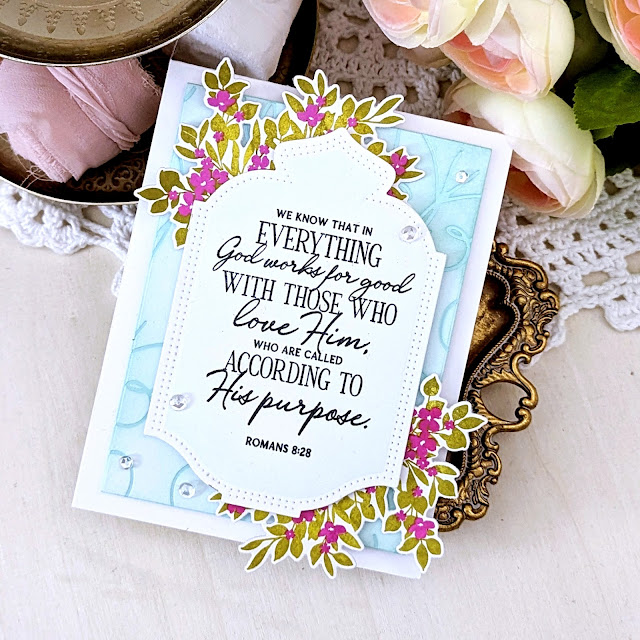 WE KNOW THAT IN
EVERYTHING
God works for good
WITH THOSE WHO
love Him,
WHO ARE CALLED
ACCORDING TO
His purpose.
ROMANS 8:28